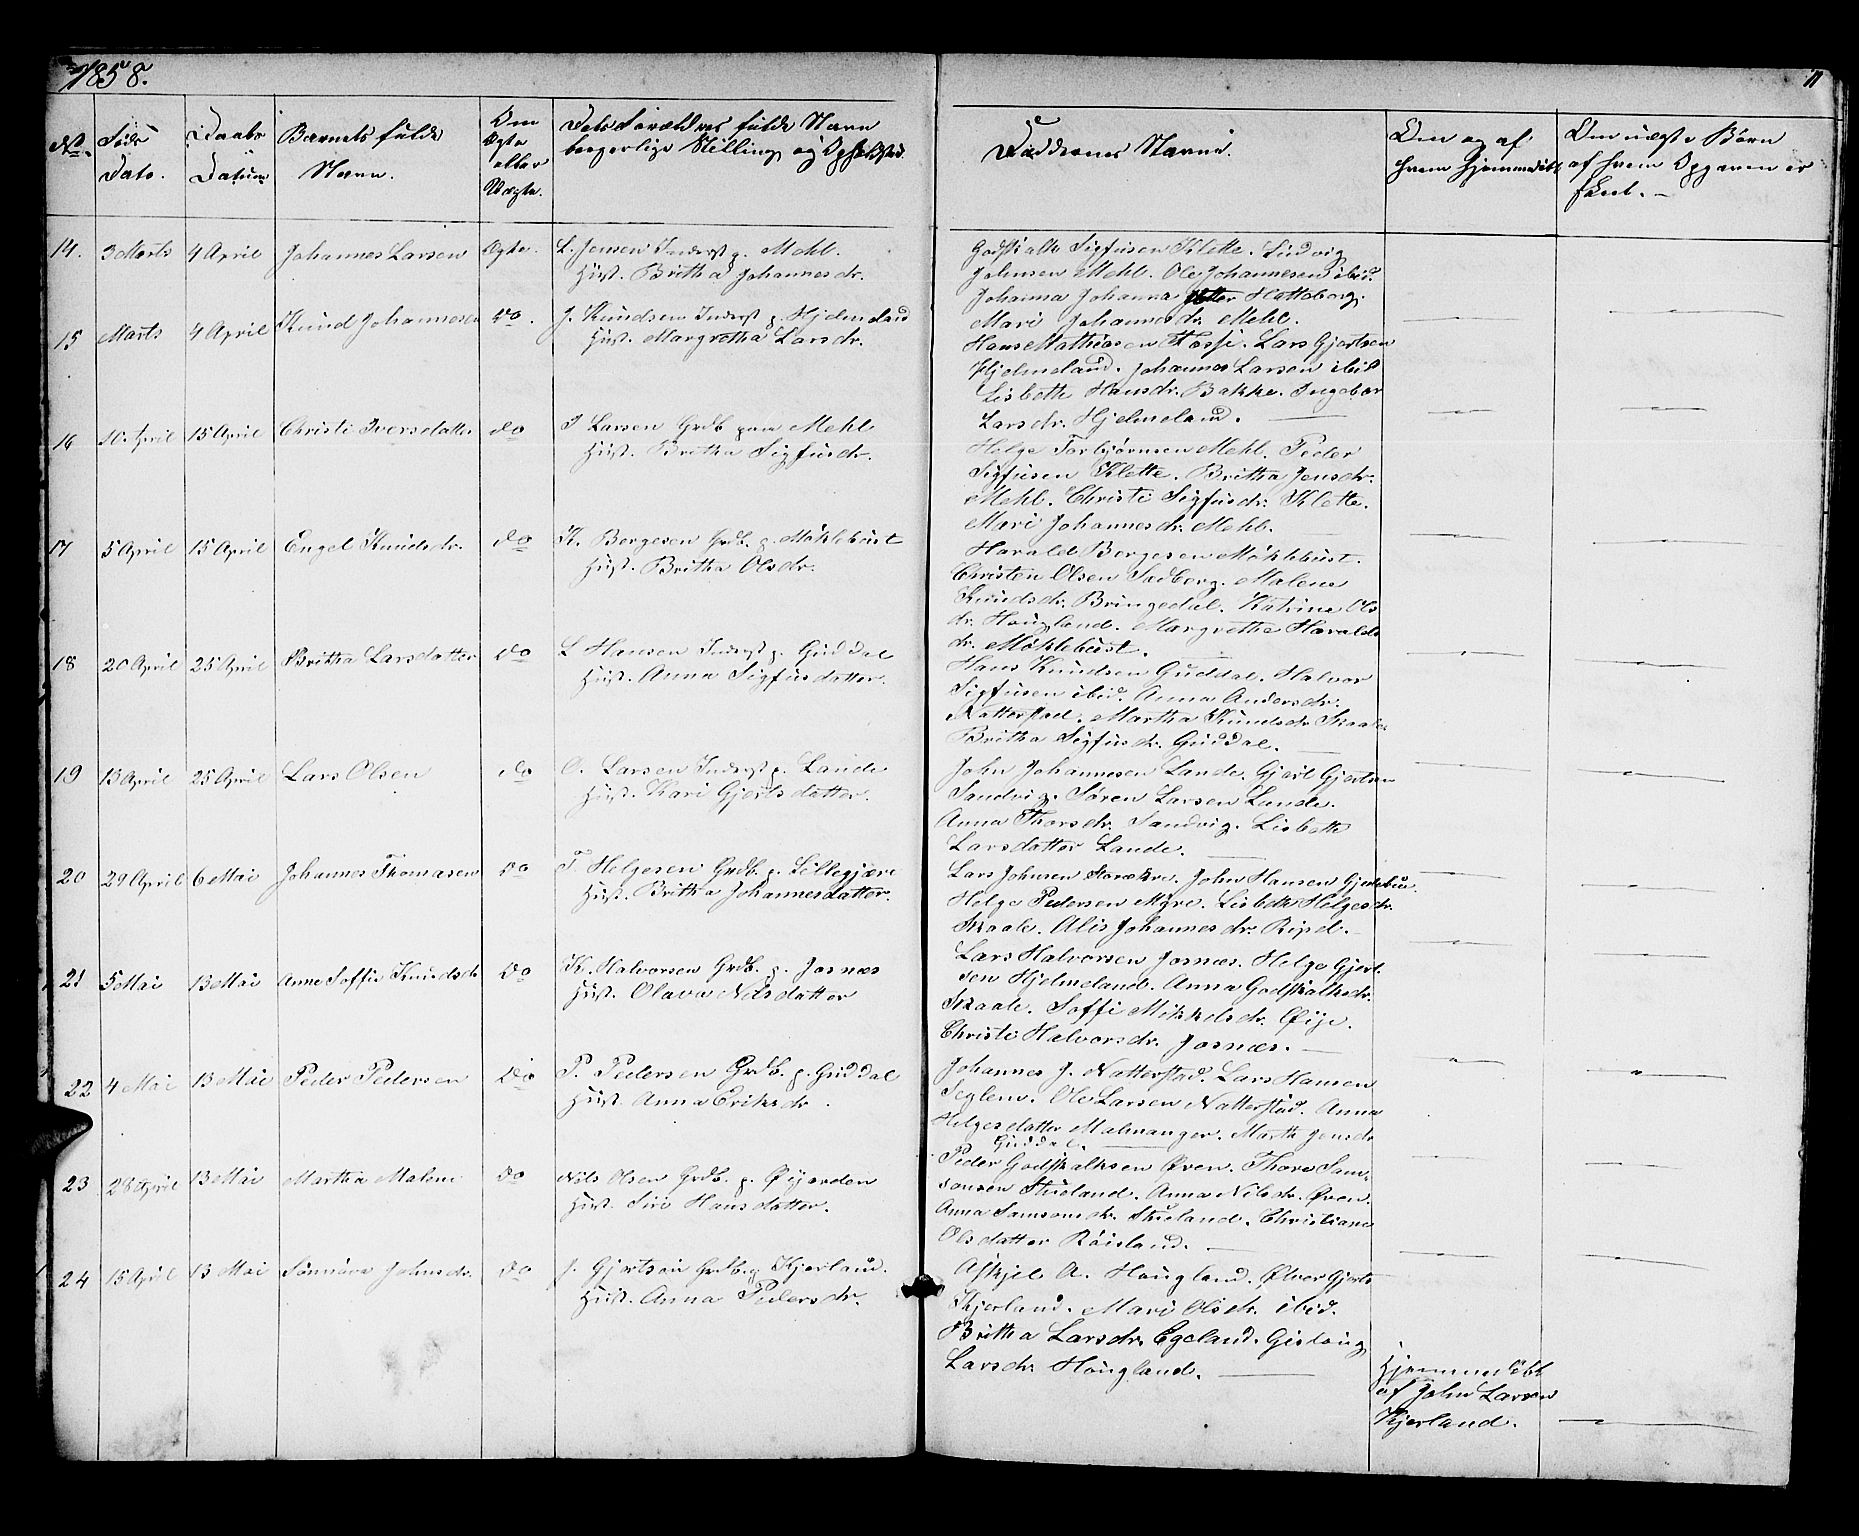 1858.
11
No. Føds Dato. Daabs Datum Barnets fulde Navn. Om Ægte eller Uægte. Dets Forældres fulde Navn borgerlige Stilling og Opholdsted.
Faddernes Navne. Om og af hvem hjemmedøbt Om uægte Børn af hvem Opgaven er skeet. —
14. 3 Marts 4 April Johannes Larsen Ægte. L. Jensen Inderst p. Mehl.
Hust. Britha Johannesdr.
Godskalk Sigfusen Klette. Ludvig
Johnsen Mehl. Ole Johannesen ibid.
Johanna Johanna Hatteberg.
Mari Johannesdr. Mehl.
15 Marts 4 April Knud Johannesen do. J. Knudsen Inderst p. Hjelmeland
Hust. Margretha Larsdr.
Hans Mathiasen Fosse. Lars Gjertsen
Hjelmeland. Johannes Larsen ibid
Lisbeth Hansdr. Bakke. Ingebor
Larsdr. Hjelmeland.
16 10 April 15 April Christi Iversdatter do I Larsen Grdb paa Mehl
Hust. Britha Sigfusdr.
Helge Torbjørnsen Mehl. Peder
Sigfusen Klette. Britha Jensdr.
Mehl. Christi Sigfusdr. Klette.
Mari Johannesdr. Mehl.
17 5 April 15 April Engel Knudsdr. do K. Borgesen Grdb. p. Møklebust
Hust. Britha Olsdr.
Harald Borgesen Møklebust.
Christen Olsen Solberg. Malene
Knudsdr. Bringedal. Katrine Ols
dr. Hougland. Margrethe Haralds
dr. Møklebust.
18 20 April 25 April Britha Larsdatter do L Hansen Inderst p. Guddal
Hust. Anna Sigfusdatter.
Hans Knudsen Guddal. Halvor
Sigfusen ibid. Anna Andersdr.
Natterstad. Martha Knudsdr. Skaale
Britha Sigfusdr. Guddal.
19 13 April 25 April Lars Olsen do O. Larsen Inderst p. Lande
Hust. Kari Gjertsdatter.
John Johannesen Lande. Gjert Gjertsen
Sandvig. Søren Larsen Lunde.
Anna Thorsdr. Sandvig. Lisbeth
Larsdatter Lande.
20 29 April 6 Mai Johannes Thomasen do T. Helgesen Grdb. p. Lillegjære
Hust. Britha Johannesdatter.
Lars Johnsen Storækre. John Hansen
Helge Pedersen Myre. Lisbeth Helgesdr.
Skaale. Alis Johannesdr. Ripel.
21 5 Mai 13 Mai Anne Soffie Knudsdr do K. Halvorsen Grdb. p. Josnæs
Hust. Olava Nilsdatter
Lars Halvorsen Josnæs. Helge Gjert
sen Hjelmeland. Anna Godskalksdr.
Skaale. Soffi Mikkelsdr. Øije.
Christi Halvorsdr. Josnæs.
22 4 Mai 13 Mai Peder Pedersen do P. Pedersen Grdb. p. Guddal
Hust. Anna Eriksdr.
Johannes J. Natterstad. Lars Hansen
Seglem. Ole Larsen Natterstad. Anna
Helgesdatter Malmanger. Marth Jensdr
Guddal.
23 28 April 13 Mai Martha Malene do Nils Olsen Grdb. p. Øijarden
Hust. Siri Hansdatter.
Peder Godskalksen Øven. Thore Sam-
sonsen Skueland. Anna Nilsdr. Øven.
Anna Samsonsdr. Skueland. Christiane
Olsdatter Røisland.
24 15 April 13 Mai Sønnøva Johnsdr. do J. Gjertsen Grdb. p Kjerland.
Hust. Anna Pedersdr.
Askjel A. Hougland. Ølver Gjerts
Kjerland. Mari Olsdr. ibid.
Britha Larsdr. Egeland. Gislaug
Larsdr Hougland.
Hjemmedøbt
af John Larsen
Kjerland.